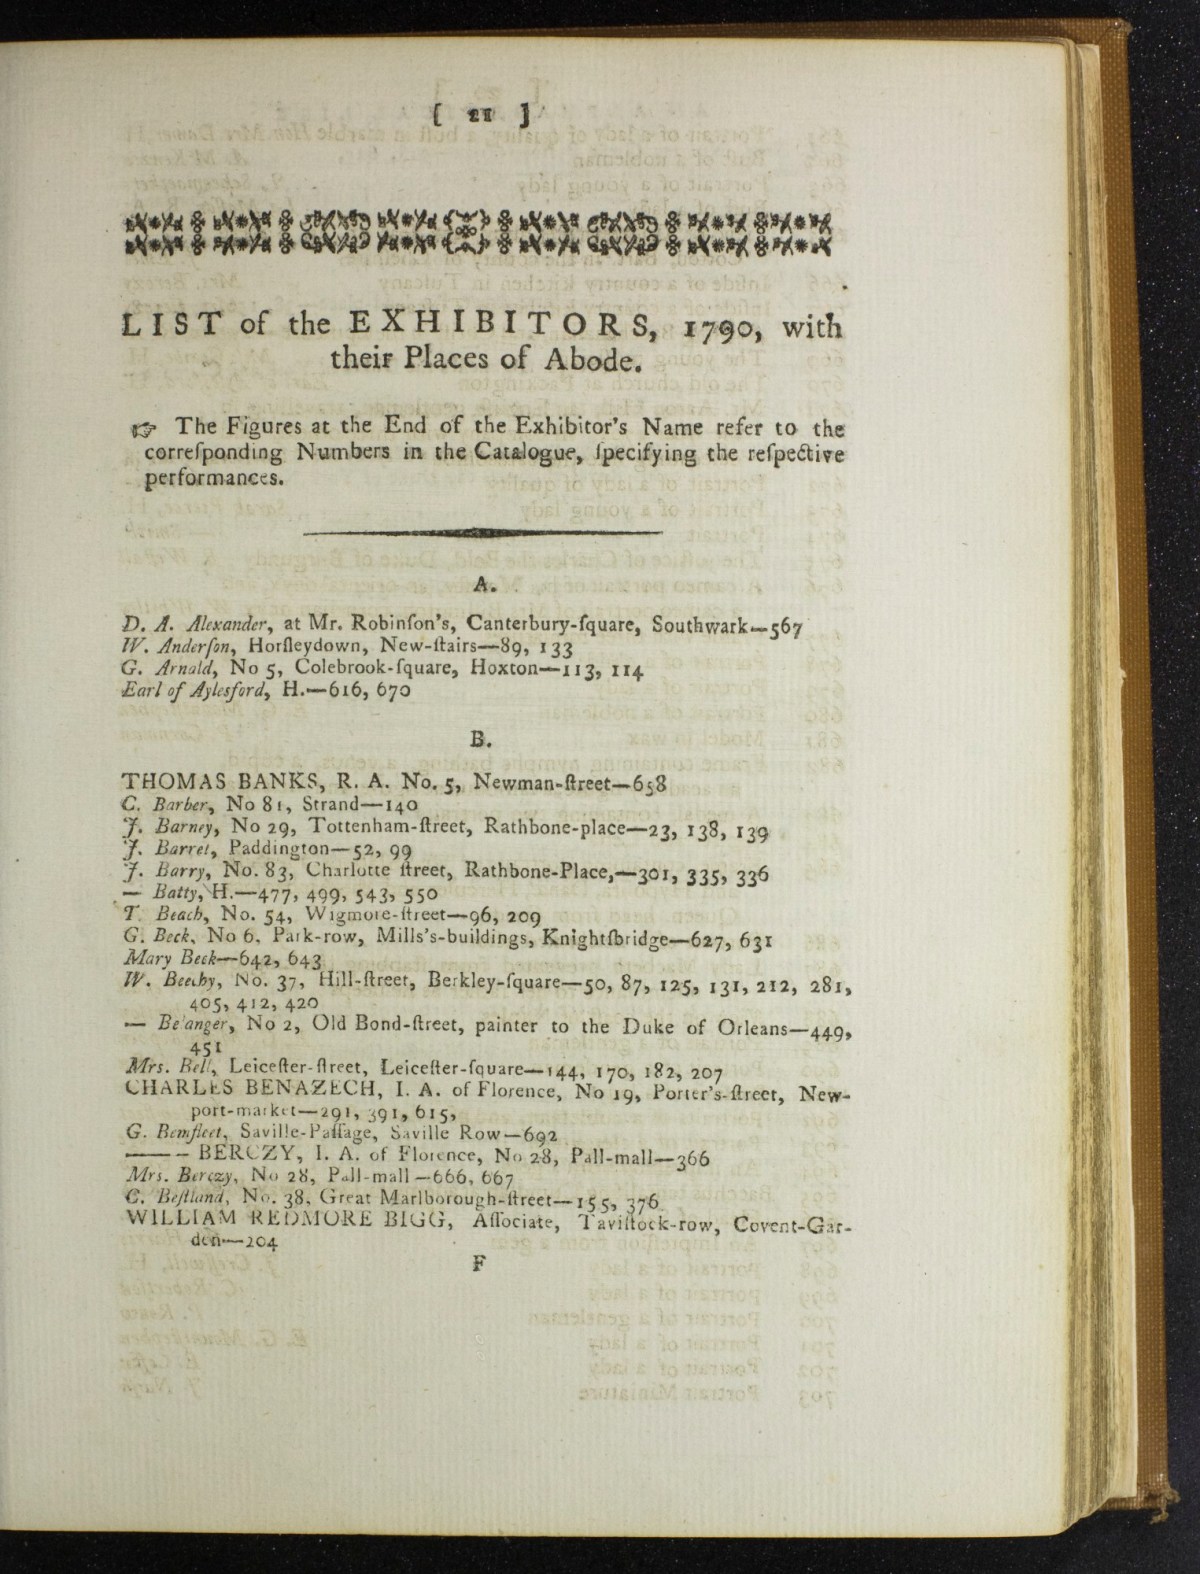 [ 21 ]
LIST of the EXHIBITORS, 1790, with
their Places of Abode.
☞ The Figures at the End of the Exhibitor's Name refer to the
correſponding Numbers in the Catalogue, ſpecifying the reſpective
performances.
A.
D. A. Alexander, at Mr. Robinſon's, Canterbury-ſquare, Southwark—567
W. Anderſon, Horſleydown, New-ſtairs—89, 133
G. Arnald, No 5, Colebrook-ſquare, Hoxton—113, 114
Earl of Aylesford, H.—616, 670
B.
THOMAS BANKS, R. A. No. 5, Newman-ſtreet—658
C. Barber, No 81, Strand—140
J. Barney, No 29, Tottenham-ſtreet, Rathbone-place—23, 138, 139
J. Barret, Paddington—52, 99
J. Barry, No. 83, Charlotte ſtreet, Rathbone-Place,—301, 335, 336
— Batty, H.—477, 499, 543, 550
T. Beach, No. 54, Wigmore-ſtreet—96, 209
G. Beck, No 6, Park-row, Mills's-buildings, Knightſbridge—627, 631
Mary Beck—642, 643
W. Beechy, No. 37, Hill-ſtreet, Berkley-ſquare—50, 87, 125, 131, 212, 281,
405, 412, 420
— Belanger, No 2, Old Bond-ſtreet, painter to the Duke of Orleans—449,
451
Mrs. Bell, Leiceſter-ſtreet, Leiceſter-ſquare—144, 170, 182, 207
CHARLES BENAZECH, I. A. of Florence, No 19, Porter's-ſtreet, New-
port-market—291, 391, 615,
G. Bemfleet, Saville-Paſſage, Saville Row—692
——— BERCZY, I. A. of Florence, No 28, Pall-mall—366
Mrs. Berczy, No 28, Pall-mall—666, 667
C. Beſtland, No. 38, Great Marlborough-ſtreet—155, 376
WILLIAM REDMORE BIGG, Aſſociate, Taviſtock-row, Covent-Gar-
den—204
F